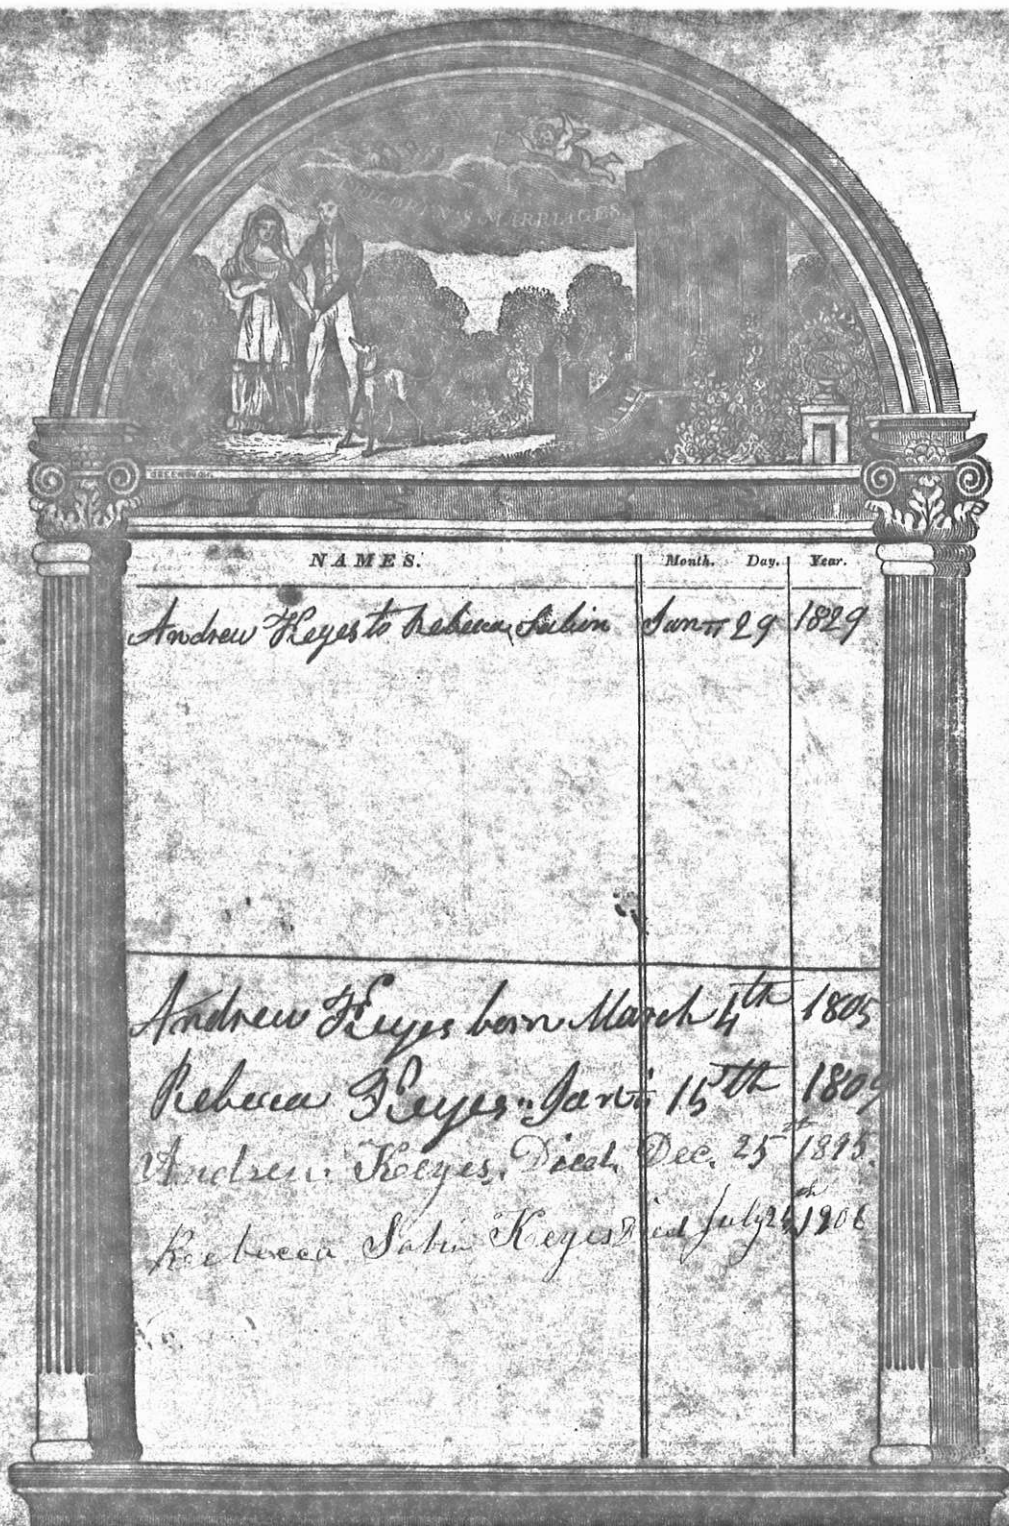 CHILDREN'S MARRIAGES
NAMES. Month. Day. Year.
Andrew Keyes to Rebecca Sabin Jany 29 1829
Andrew Keyes born March 4th 1805
Rebecca Keyes " Jany 15th 1809
Andrew Keeyes. Died. Dec. 25th 1895.
Reebecca Sabin Keyes Died July th 1906